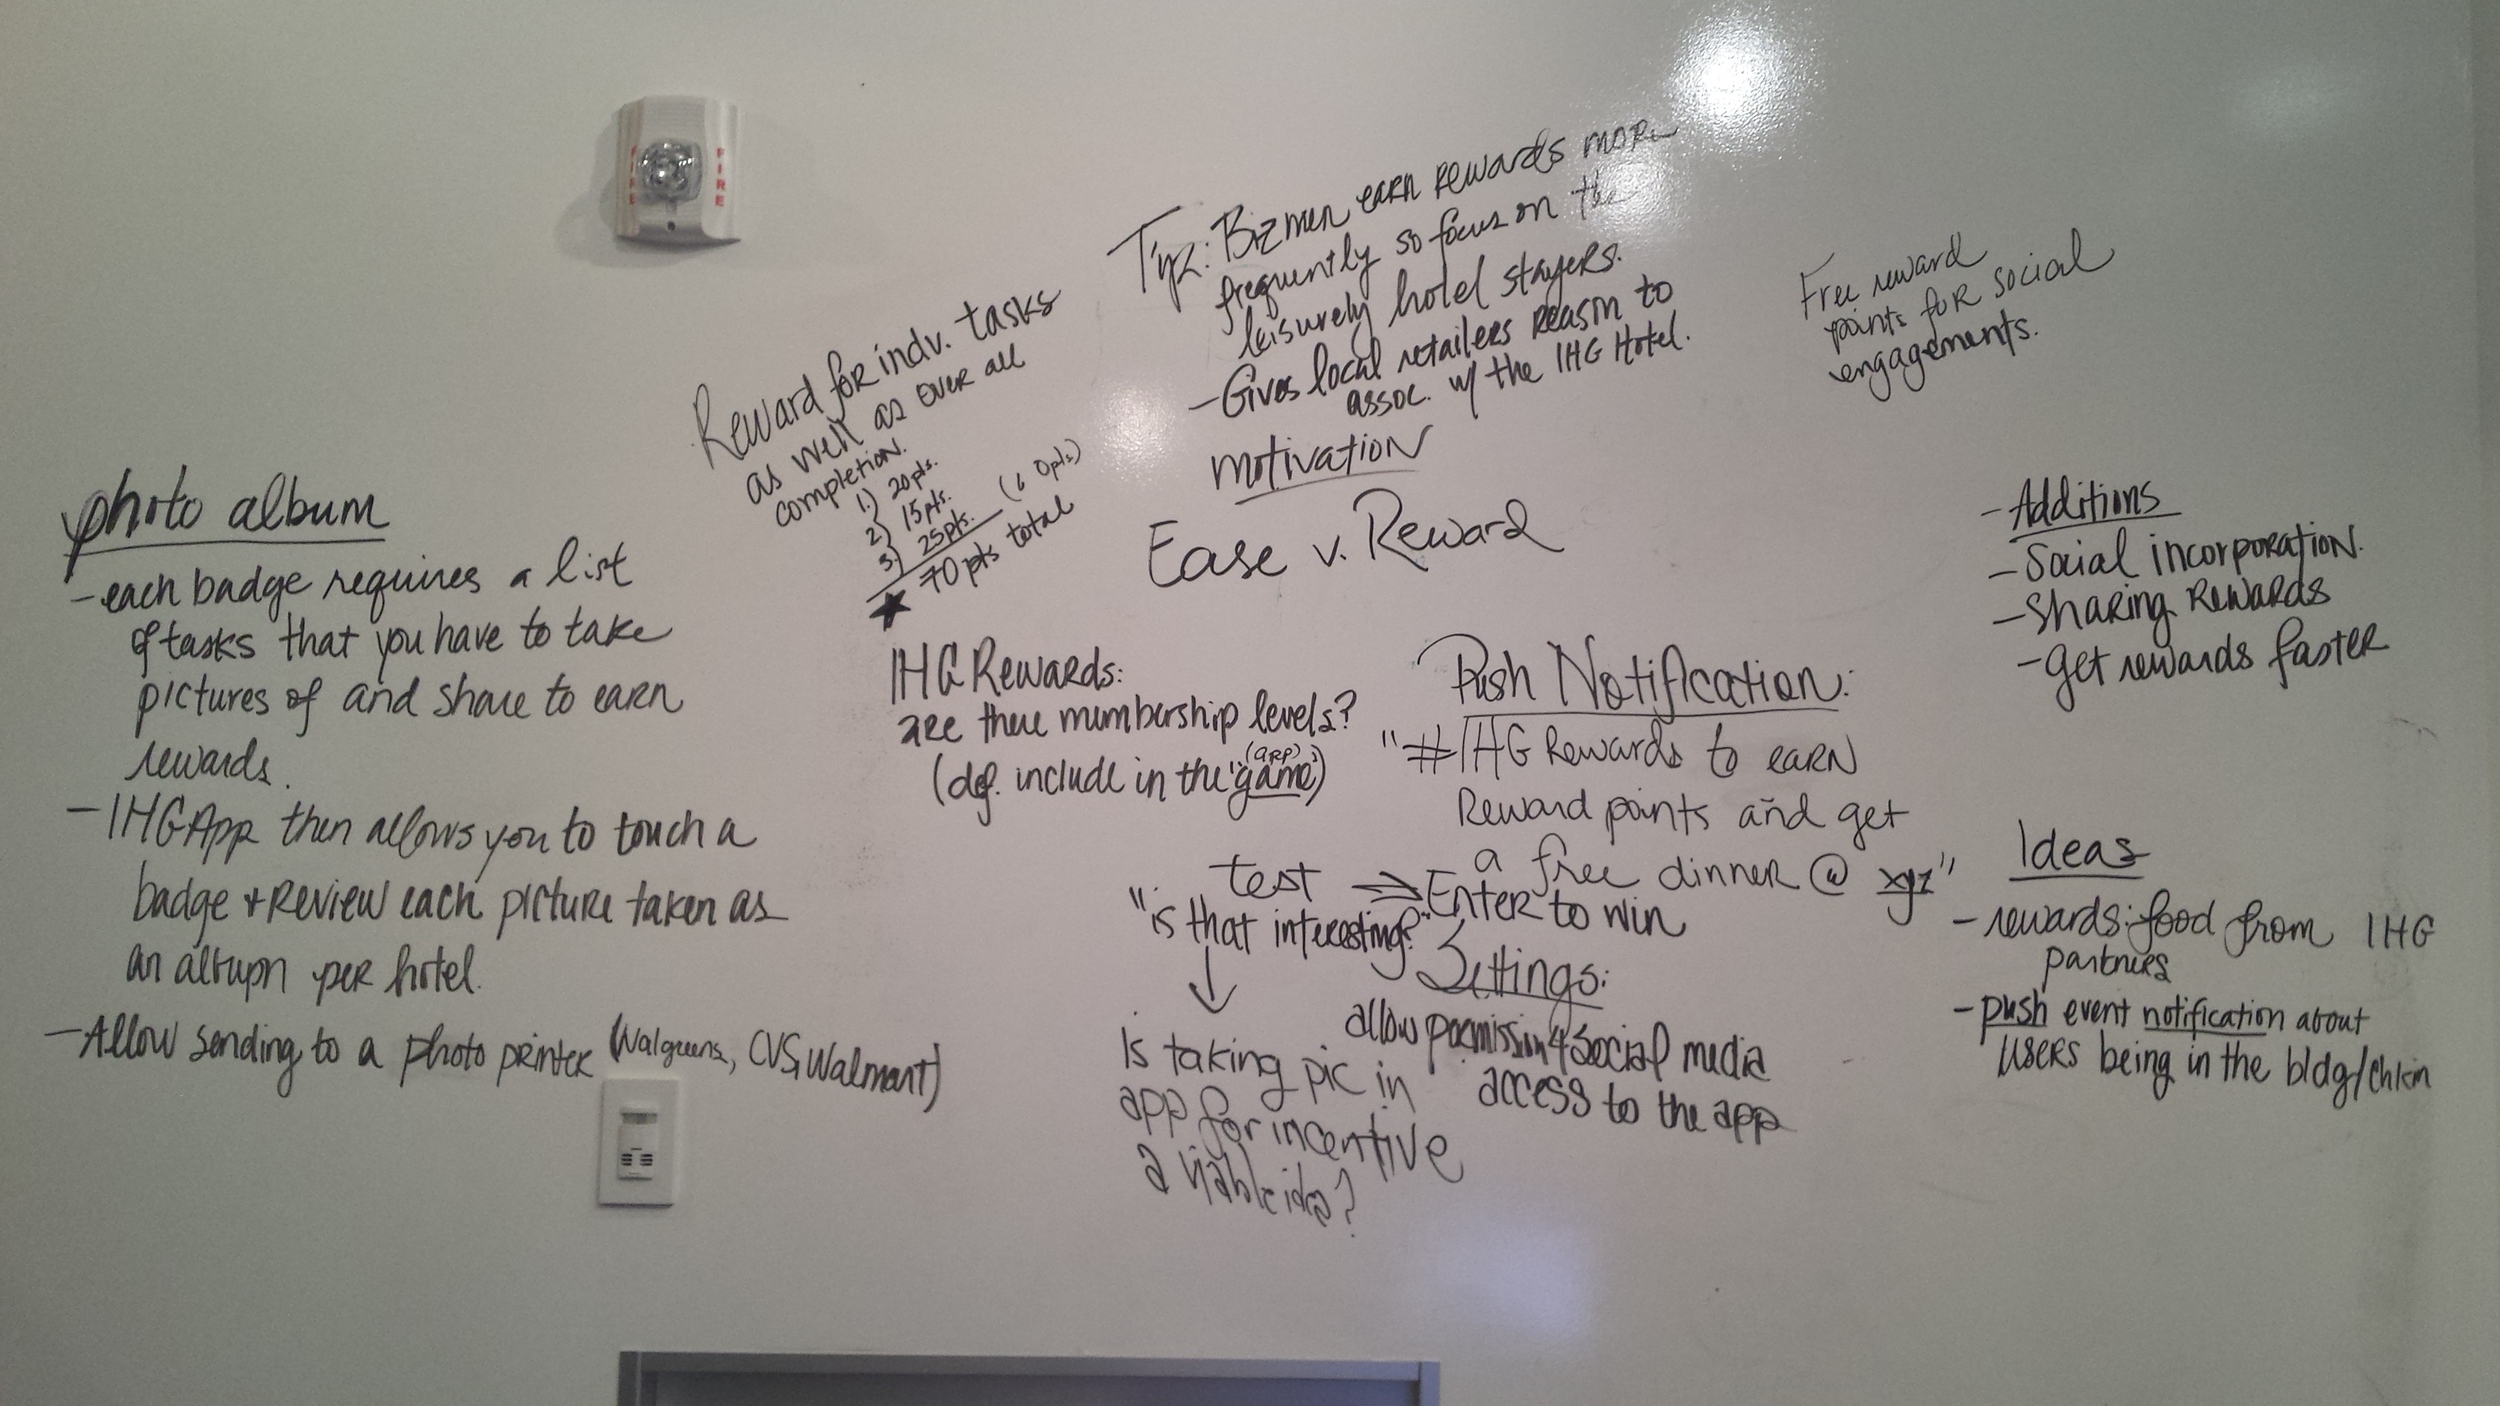 FIRE
FIRE
photo album
- each badge requires a list
of tasks that you have to take
pictures of and share to earn
rewards.
- IHG App then allows you to touch a
badge + review each picture taken as
an album per hotel.
- Allow sending to a photo printer (Walgreens, CVS, Walmart)
Reward for indv. tasks
as well as over all
completion.
1) 20pts.
2) 15pts.
3) 25pts. (60pts)
★ 70 pts total
Bizmen earn rewards more
frequently so focus on the
leisurely hotel stayers.
- Gives local retailers reason to
assoc. w/ the IHG Hotel.
motivation
Ease v. Reward
Free reward
points for social
engagements.
IHG Rewards:
are there membership levels?
(app)
(def. include in the "game")
Push Notification:
"#IHG Rewards to earn
Reward points and get
a free dinner @ xyz"
⇒ Enter to win
test
"is that interesting?"
↓
Is taking pic in
app for incentive
a viable idea?
Settings:
allow permission 4 social media
access to the app
- Additions
- Social incorporation.
- Sharing Rewards
- get rewards faster
Ideas
- rewards: food from IHG
partners
- push event notification about
users being in the bldg/chkin